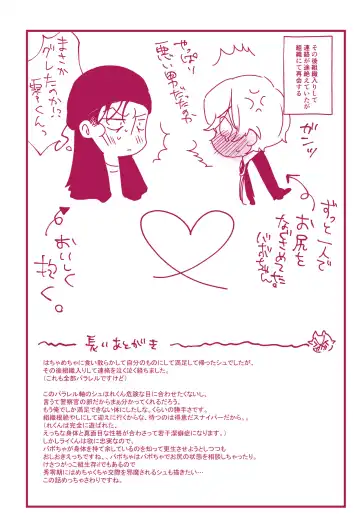 その後組織入りして
連絡が途絶えていたが
組織にて再会する
やっぱり
悪い男だったのか
まさか
グレたのか!?
零くんっ
ガーンッ
ずっと一人で
お尻を
なぐさめてた
バボちゃん
おいしく
抱く。
長いあとがき
はちゃめちゃに食い散らかして自分のものにして満足して帰ったシュでしたが、
その後組織入りして連絡を泣く泣く絶ちました。
(これも全部パラレルですけど)
このパラレル軸のシュはれくん危険な目に合わせたくないし、
言うて警察官の卵だからまぁ分かってくれるだろう。
もう俺でしか満足できない体にしたしな、くらいの勝手さです。
組織根絶やしにして迎えに行くからな、待つのは得意だスナイパーだから。。
(れくんは完全に遊ばれた、
えっちな身体と真面目な性格が合わさって若干潔癖症になります。)
しかしライくんは欲に忠実なので、
バボちゃが身体を持て余しているのを知って更生させようとしつつも
おしおきえっちですね、、バボちゃはバボちゃでお尻の状態を相談しちゃったり。
けさつがっこ組生存ifでもあるので
秀零期にはめちゃくちゃ交際を邪魔されるシュも描きたい…
この話めっちゃさわりですね。